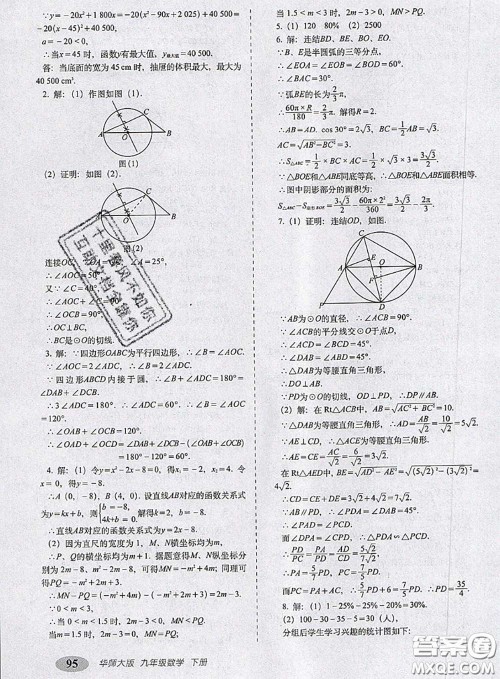 ∴y=-20x²+1 800x=-20(x²-90x+2 025)+40 500=
-20(x-45)²+40 500,
a=-20<0,
∴当x=45 时, 函数y有最大值, y最大值=40 500.
答: 当底面的宽为45 cm时, 抽屉的体积最大, 最大为
40 500 cm³.
2. 解: (1) 作图如图 (1).
C
A
O
B
图(1)
(2) 证明: 如图 (2).
C
A
O
B
(2)
连接OC,
∴∠AOC=50°
又∵∠C=40°
∴∠OCB=90°.
∴OC⊥BC,
∴BC是⊙O的切线.
3. 解: ∵四边形OABC为平行四边形, ∴∠B=∠AOC.
∵∠AOC=2∠ADC, ∴∠B=2∠ADC.
∵四边形ABCD内接于圆, ∴∠B+∠ADC=180°=
∠DAB+∠DCB.
∴3∠ADC=180°. ∴∠ADC=60°.
∴∠B=∠AOC=120°.
∴∠OAB+∠OCB=120°.
∴∠OAD+∠OCD=(∠DAB+∠DCB)-(∠OAB+∠OCB)
=180°-120°=60°.
4. 解: (1) 令y=x²-2x-8=0, 得x₁=-2, x₂=4. 令x
=0, 得y=-8.
∴A (0, -8), B (4, 0). 设直线AB对应的函数关系式
为y=kx+b, 则{b=-8, 4k+b=0. 解得k=2, b=-8.
∴直线AB对应的函数关系式为y=2x-8.
(2) 因为直尺的宽度为1, M、N横坐标分别为m和m+1,
∴P、Q的横坐标均为m+1. 据题意得M、N纵坐标分
别为m²-2m-8和2m-8, 可得MN=-m²+4m; 同理可
得PQ=-m²+2m+3.
∴MN-PQ=(-m²+4m)-(-m²+2m+3)=2m-3.
∵0<m<3,
∴当0<m<1.5时, 2m-3<0, MN<PQ.
当m=1.5时, 2m-3=0, MN=PQ.
95 华师大版 九年级数学 下册
当1.5<m<3时, 2m-3>0, MN>PQ.
5. (1) 120 80% (2) 2500
6. 解: 连结BD、BE、BO、EO.
∵B、E是半圆弧的三等分点,
∴∠EOA=∠EOB=∠BOD=60°.
∴∠BAC=30°.
∵弧BE的长为2/3π,
∴60π×R/180=2/3π. 解得R=2.
∴AB=AD. cos 30°=2√3. ∴BC=1/2AB=√3.
AC=√(AB²-BC²)=3.
∴S△ABC=1/2×BC×AC=1/2×√3×3=3√3/2.
∵△BOE和△ABE同底等高, ∴△BOE和△ABE面积相等.
∴图中阴影部分的面积为:
S△ABC-S扇形BOE=3√3/2-60π×2²/360=3√3/2-2/3π.
7. (1) 证明: 连结OD, 如图.
C
A
O
B
E
P
D
∵AB为⊙O的直径, ∴∠ACB=90°.
∵∠ACB的平分线交⊙O于点D,
∴△DAB为等腰直角三角形.
∴DO⊥AB.
∵PD为⊙O的切线, ∴OD⊥PD. ∴DP∥AB.
(2) 解: 在Rt△ACB中, AB=√(AC²+BC²)=10.
∵△DAB为等腰直角三角形, ∴AD=AB/√2=10/√2=5√2.
∵AE⊥CD, ∴△ACE为等腰直角三角形.
∴AE=CE=AC/√2=6/√2=3√2.
在Rt△AED中, DE=√(AD²-AE²)=√((5√2)²-(3√2)²)=
4√2.
∴CD=CE+DE=3√2+4√2=7√2.
∵AB∥PD, ∴∠PDA=∠DAB=45°.
∴∠PAD=∠PCD.
而∠DPA=∠CPD, ∴△PDA∽△PCD.
∴PD/PC=PA/PD=AD/CD=5√2/7√2,
∴PA=5/7PD, PC=7/5PD.
而PC=PA+AC, ∴5/7PD+6=7/5PD. ∴PD=35/4.
8. 解: (1) 1-25%-25%-20%=30%.
(2) 100-30-35-5=30(人).
分组后学生学习兴趣的统计图如下:
十里春风不如你